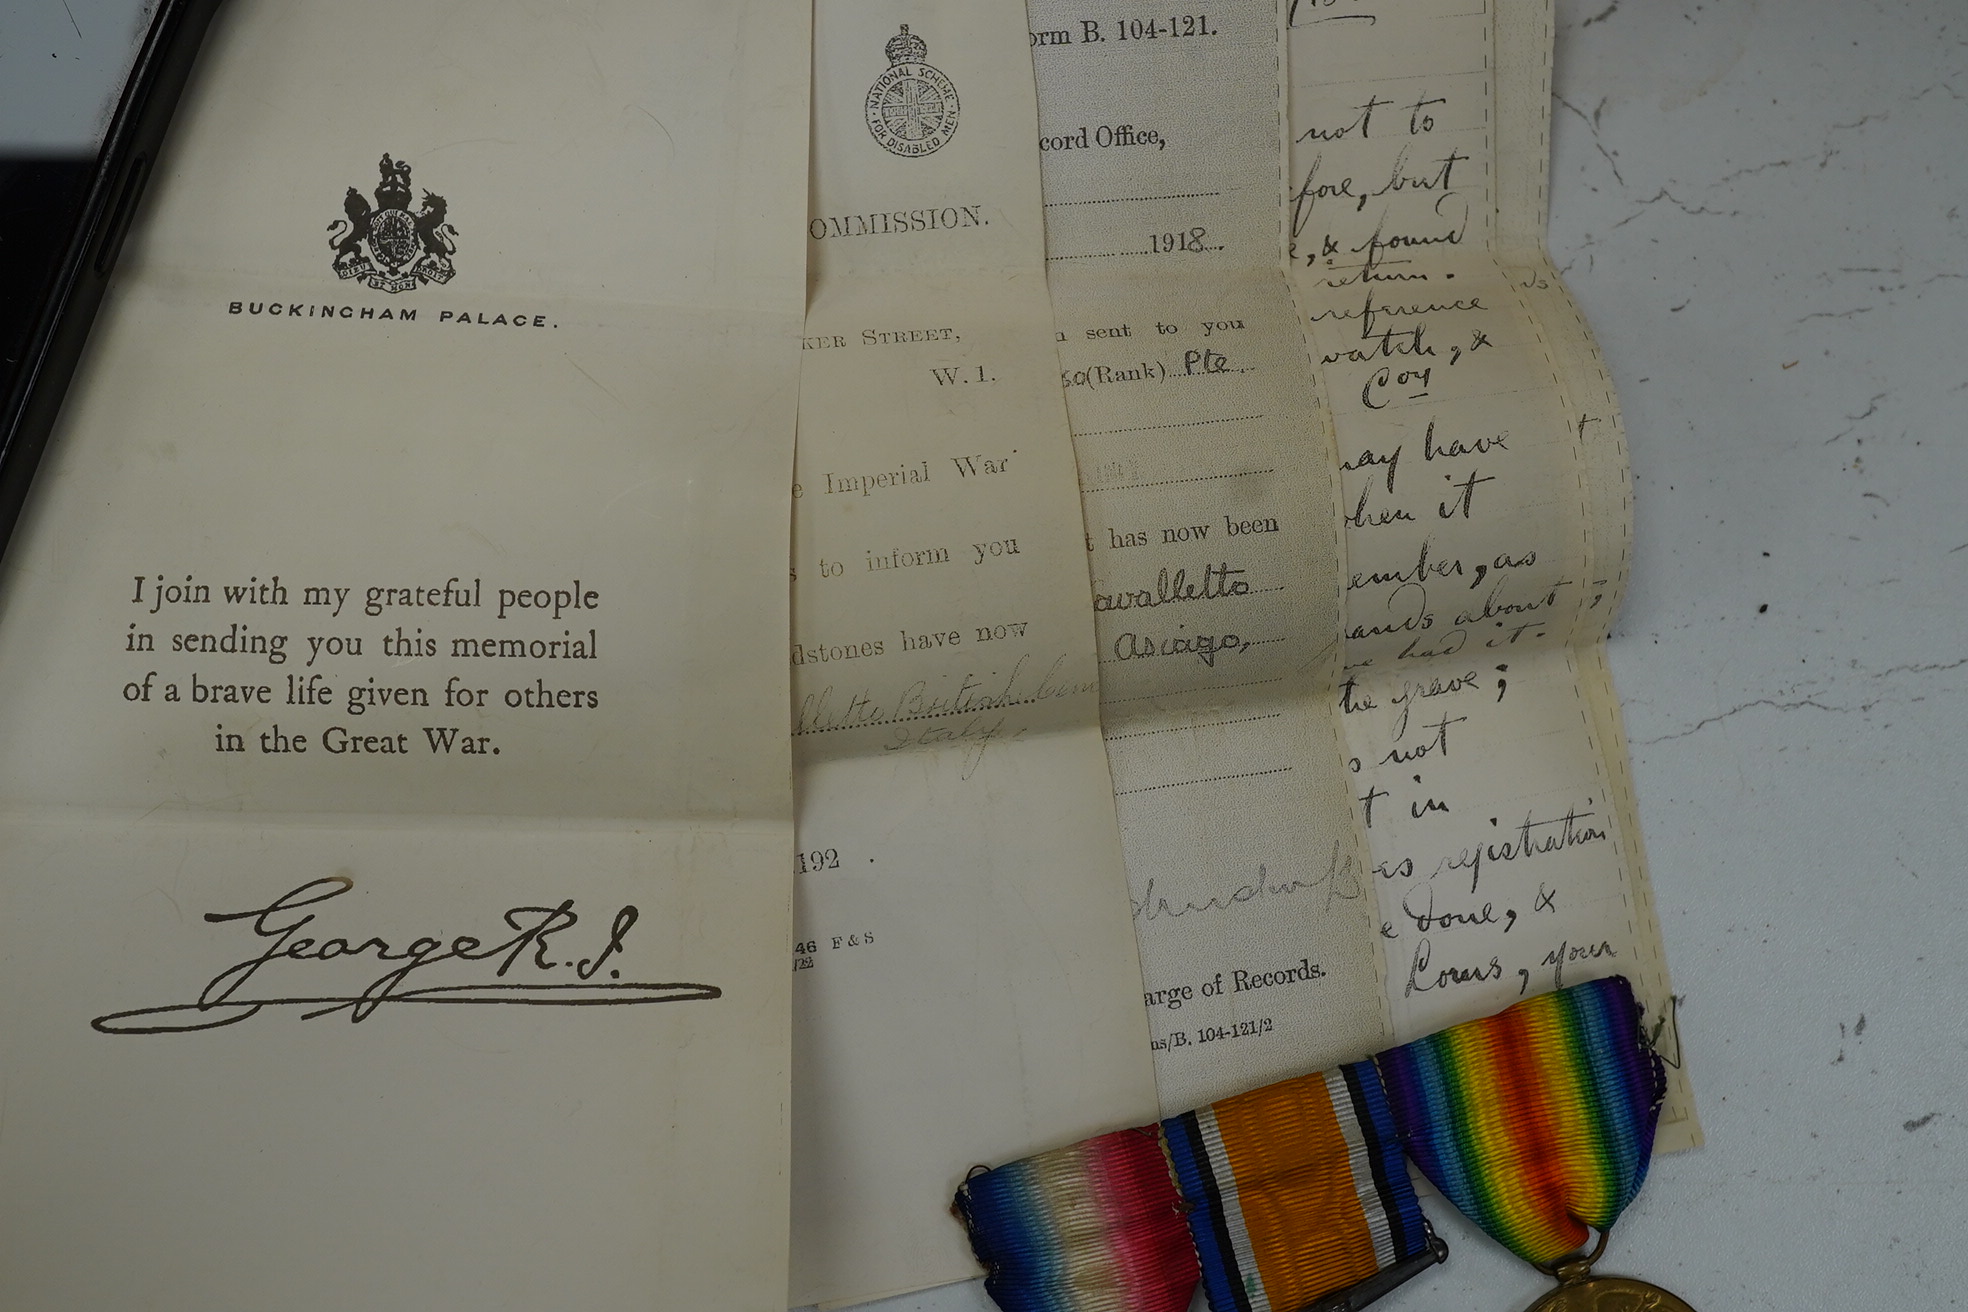 BUCKINGHAM PALACE.
I join with my grateful people
in sending you this memorial
of a brave life given for others
in the Great War.
George R.I.
NATIONAL SCHEME
FOR DISABLED MEN
OMMISSION.
KER STREET,
W.1.
e Imperial War
s to inform you
dstones have now
lletto British Cem
Italy.
192 .
46 F & S
/22
orm B. 104-121.
cord Office,
1918
n sent to you
(Rank) Pte
t has now been
avalletto
Asiago,
arge of Records.
ns/B. 104-121/2
not to
fore, but
e, & found
return.
reference
watch, &
Coy
may have
when it
ember, as
ands about;
ve had it.
the grave;
s not
t in
es registration
e done, &
Lorns, your